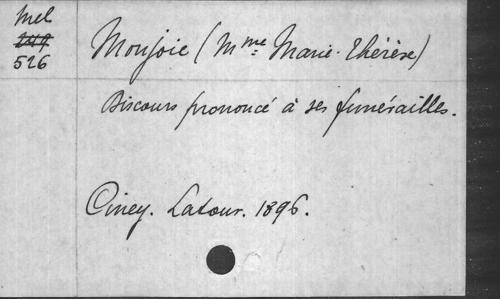 Mel
249
526
Monjoie (Mme Marie-Thérèse)
Discours prononcé à ses funérailles.
Ciney. Latour. 1896.